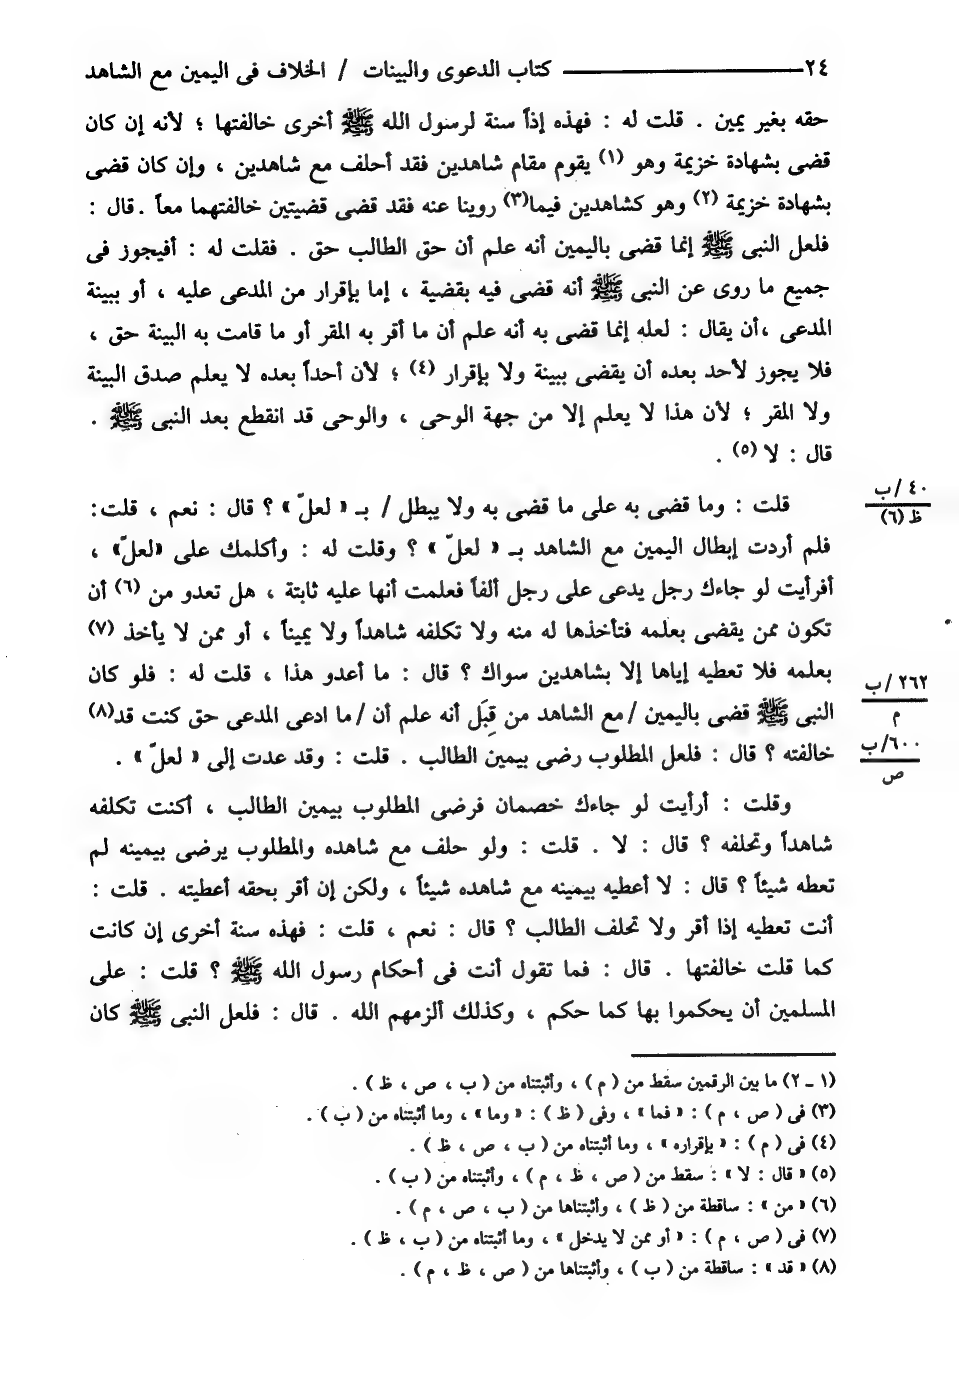 ٢٤ ــــــــــــ كتاب الدعوى والبينات / الخلاف فى اليمين مع الشاهد
حقه بغير يمين . قلت له : فهذه إذاً سنة لرسول الله ﷺ أخرى خالفتها ؛ لأنه إن كان
قضى بشهادة خزيمة وهو (١) يقوم مقام شاهدين فقد أحلف مع شاهدين ، وإن كان قضى
بشهادة خزيمة (٢) وهو كشاهدين فيما(٣) روينا عنه فقد قضى قضيتين خالفتهما معاً .قال :
فلعل النبى ﷺ إنما قضى باليمين أنه علم أن حق الطالب حق . فقلت له : أفيجوز فى
جميع ما روى عن النبى ﷺ أنه قضى فيه بقضية ، إما بإقرار من المدعى عليه ، أو ببينة
المدعى ،أن يقال : لعله إنما قضى به أنه علم أن ما أقر به المقر أو ما قامت به البينة حق ،
فلا يجوز لأحد بعده أن يقضى ببينة ولا بإقرار (٤) ؛ لأن أحداً بعده لا يعلم صدق البينة
ولا المقر ؛ لأن هذا لا يعلم إلا من جهة الوحى ، والوحى قد انقطع بعد النبى ﷺ .
قال : لا (٥) .
قلت : وما قضى به على ما قضى به ولا يبطل / بـ « لعلّ » ؟ قال : نعم ، قلت:
٤٠ /ب
ظ (٦)
فلم أردت إبطال اليمين مع الشاهد بـ « لعلّ » ؟ وقلت له : وأكلمك على «لعلّ» ،
أفرأيت لو جاءك رجل يدعى على رجل ألفاً فعلمت أنها عليه ثابتة ، هل تعدو من (٦) أن
تكون ممن يقضى بعلمه فتأخذها له منه ولا تكلفه شاهداً ولا يميناً ، أو ممن لا يأخذ (٧)
بعلمه فلا تعطيه إياها إلا بشاهدين سواك ؟ قال : ما أعدو هذا ، قلت له : فلو كان
٢٦٢ /ب
م
النبى ﷺ قضى باليمين /مع الشاهد من قِبَل أنه علم أن /ما ادعى المدعى حق كنت قد(٨)
٦٠٠/ب
ص
خالفته ؟ قال : فلعل المطلوب رضى بيمين الطالب . قلت : وقد عدت إلى « لعلّ » .
وقلت : أرأيت لو جاءك خصمان فرضى المطلوب بيمين الطالب ، أكنت تكلفه
شاهداً وتحلفه ؟ قال : لا . قلت : ولو حلف مع شاهده والمطلوب يرضى بيمينه لم
تعطه شيئاً ؟ قال : لا أعطيه بيمينه مع شاهده شيئاً ، ولكن إن أقر بحقه أعطيته . قلت :
أنت تعطيه إذا أقر ولا تحلف الطالب ؟ قال : نعم ، قلت : فهذه سنة أخرى إن كانت
كما قلت خالفتها . قال : فما تقول أنت فى أحكام رسول الله ﷺ ؟ قلت : على
المسلمين أن يحكموا بها كما حكم ، وكذلك ألزمهم الله . قال : فلعل النبى ﷺ كان
(١ ـ ٢) ما بين الرقمين سقط من ( م ) ، وأثبتناه من ( ب ، ص ، ظ ) .
(٣) فى ( ص ، م ) : « فما » ، وفى ( ظ ) : « وما » ، وما أثبتناه من ( ب ) .
(٤) فى ( م ) : « بإقراره » ، وما أثبتناه من ( ب ، ص ، ظ ) .
(٥) « قال : لا » : سقط من ( ص ، ظ ، م ) ، وأثبتناه من ( ب ) .
(٦) « من » : ساقطة من ( ظ ) ، وأثبتناها من ( ب ، ص ، م ) .
(٧) فى ( ص ، م ) : « أو ممن لا يدخل » ، وما أثبتناه من ( ب ، ظ ) .
(٨) « قد » : ساقطة من ( ب ) ، وأثبتناها من ( ص ، ظ ، م ) .